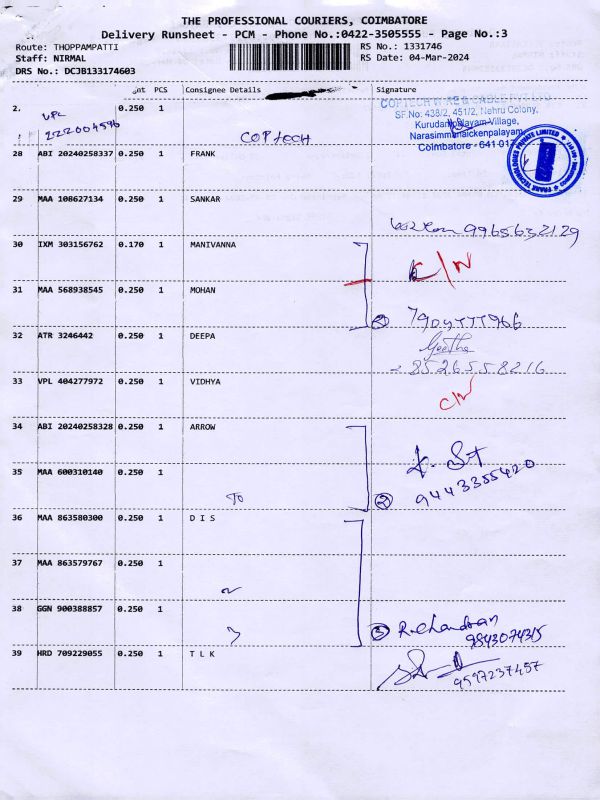 THE PROFESSIONAL COURIERS, COIMBATORE
Delivery Runsheet - PCM - Phone No.:0422-3505555 - Page No.:3
Route: THOPPAMPATTI RS No.: 1331746
Staff: NIRMAL RS Date: 04-Mar-2024
DRS No.: DCJB133174603
nt PCS Consignee Details Signature
2. VPL 0.250 1 COPTECH WIRE & CABLE PVT LTD
2022004596 COPTECH SF.No: 438/2, 451/2, Nehru Colony,
Kurudampalayam Village,
Narasimmanaickenpalayam,
Coimbatore - 641 031
28 ABI 20240258337 0.250 1 FRANK
FRANK TECHNOLOGIES PRIVATE LIMITED
29 MAA 108627134 0.250 1 SANKAR
9965632129
30 IXM 303156762 0.170 1 MANIVANNA
C/N
31 MAA 568938545 0.250 1 MOHAN
② 7904777966
32 ATR 3246442 0.250 1 DEEPA Geetha
- 8526558216
33 VPL 404277972 0.250 1 VIDHYA
C/N
34 ABI 20240258328 0.250 1 ARROW
35 MAA 600310140 0.250 1 ② 9443355420
TO
36 MAA 863580300 0.250 1 D I S
37 MAA 863579767 0.250 1
38 GGN 900388857 0.250 1
③ R. Chandran
9843074315
39 HRD 709229055 0.250 1 T L K
9597237457